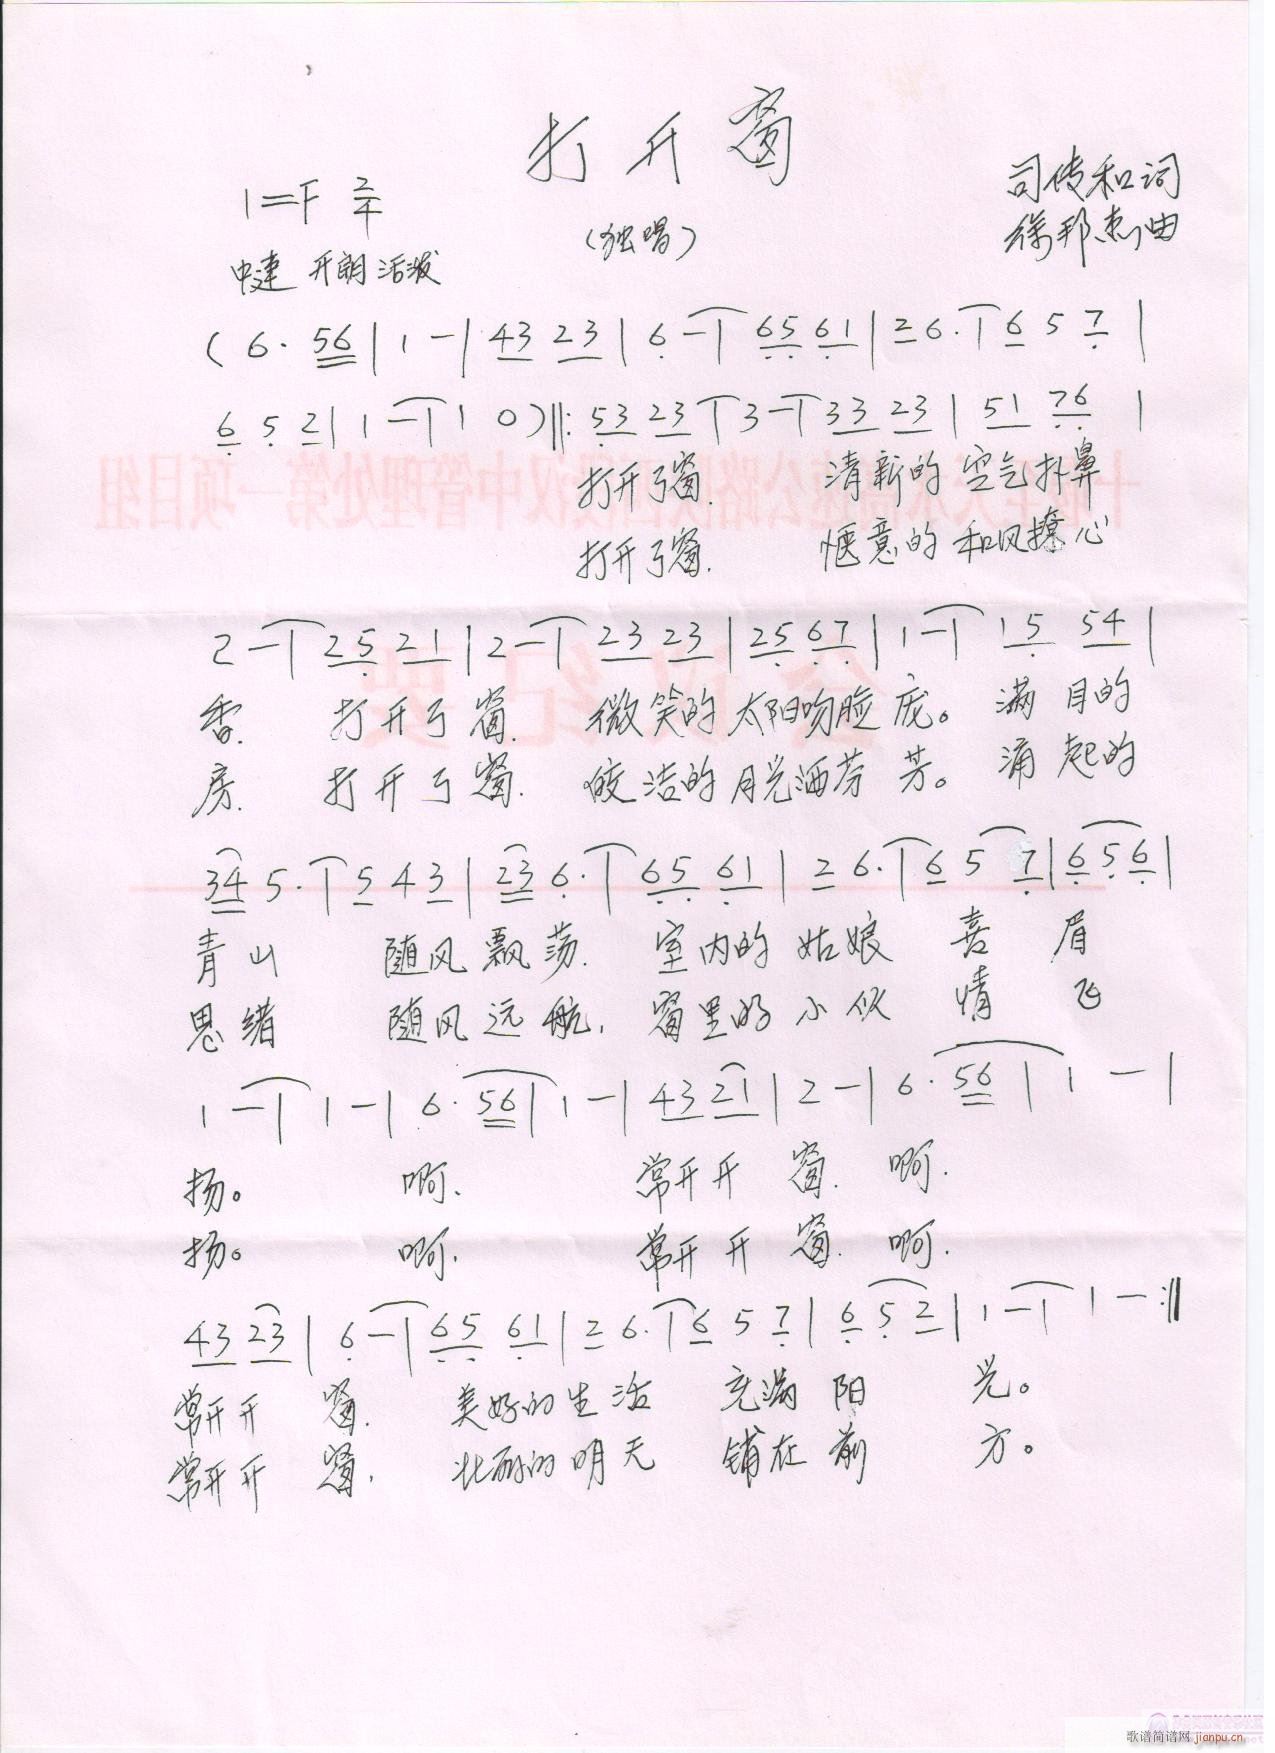 打开窗
1=F 2/4
(独唱)
司传和词
徐邦杰曲
中速 开朗 活泼
( 6· 56 | 1 - | 43 23 | 6 - | 65 61 | 26· | 6 5 7 |
6 5 2 | 1 - | 1 0 ) ‖: 53 23 | 3 - | 33 23 | 51 76 |
打开了窗. 清新的空气扑鼻
打开了窗. 惬意的和风撩心
2 - | 25 21 | 2 - | 23 23 | 25 67 | 1 - | 15 54 |
香. 打开了窗. 微笑的太阳吻脸庞。满目的
房. 打开了窗. 皎洁的月光洒芬芳。涌起的
34 5· | 5 4 3 | 23 6· | 65 61 | 26· | 6 5 7 | 6 5 6 |
青山 随风飘荡. 室内的姑娘 喜 眉
思绪 随风远航, 窗里的小伙 情 飞
1 - | 1 - | 6· 56 | 1 - | 43 21 | 2 - | 6· 56 | 1 - |
扬。 啊. 常开开窗. 啊.
扬。 啊. 常开开窗. 啊.
43 23 | 6 - | 65 61 | 26· | 6 5 7 | 6 5 2 | 1 - | 1 - :‖
常开开窗. 美好的生活 充满阳 光。
常开开窗, 壮丽的明天 铺在前 方。
歌谱简谱网 jianpu.cn